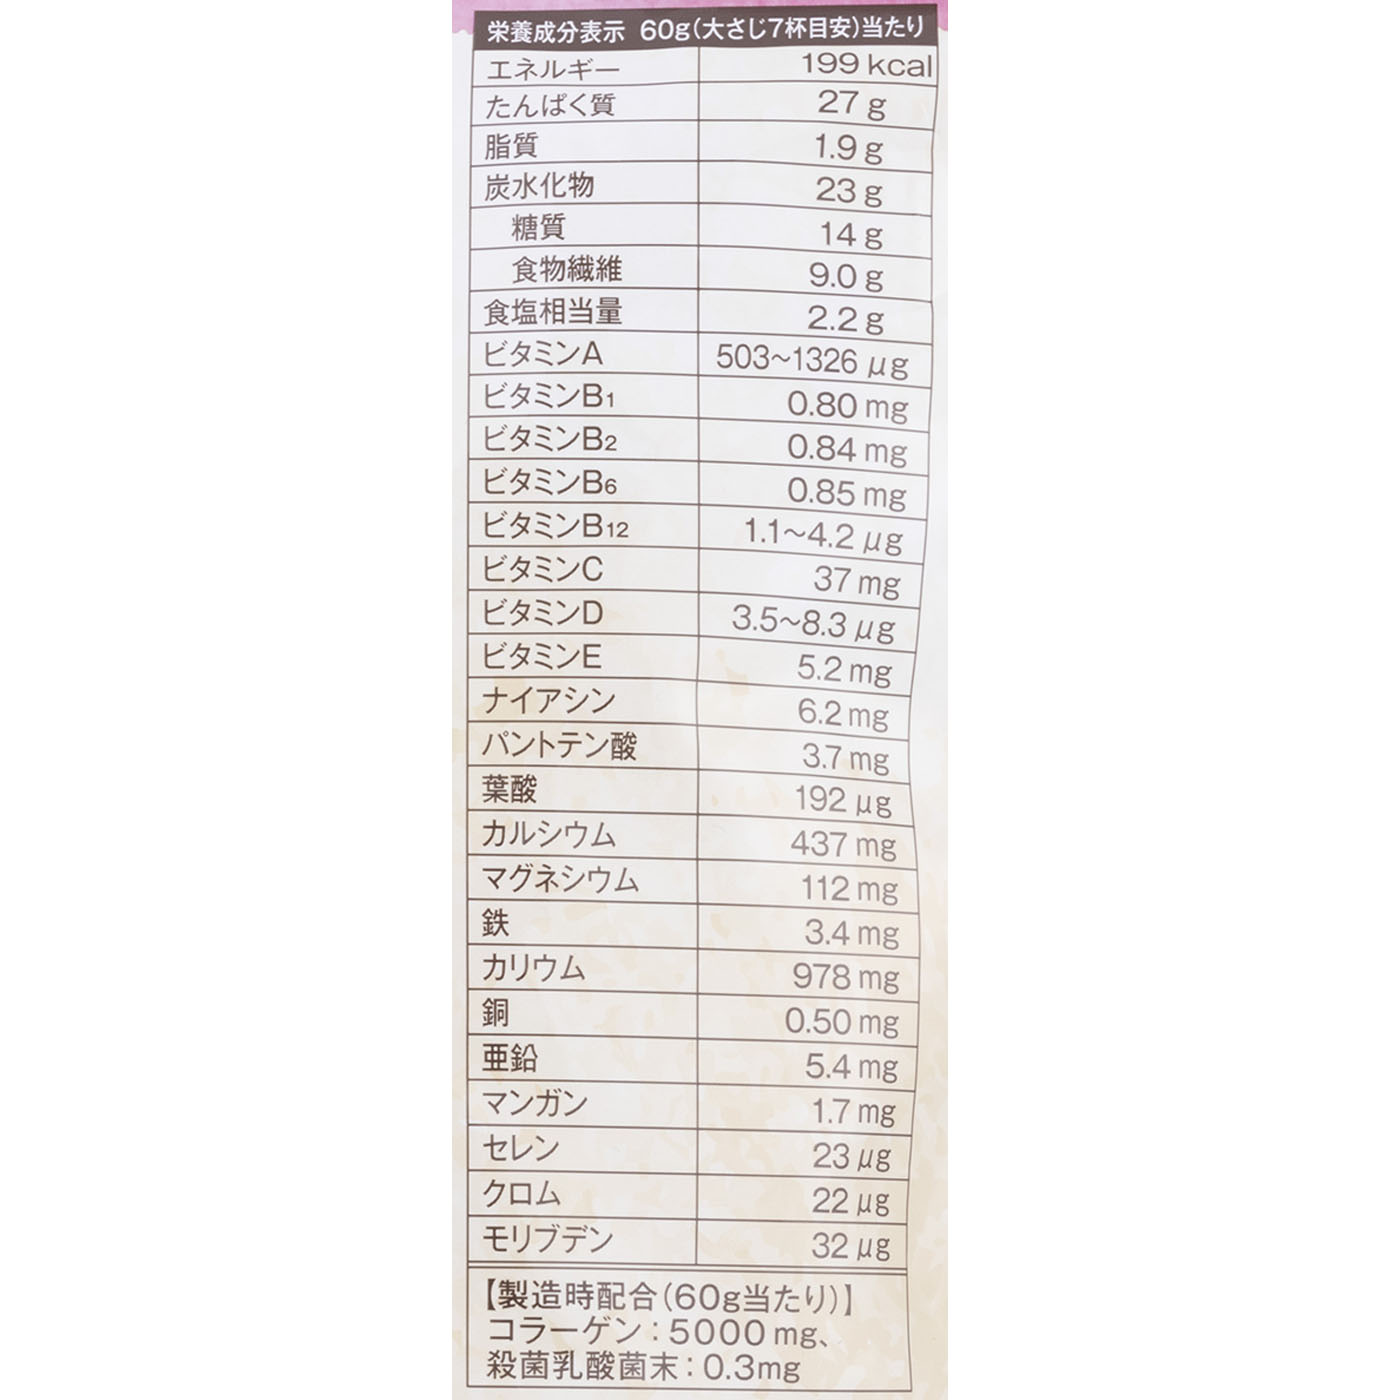 栄養成分表示 60g(大さじ7杯目安)当たり
エネルギー 199 kcal
たんぱく質 27 g
脂質 1.9 g
炭水化物 23 g
糖質 14 g
食物繊維 9.0 g
食塩相当量 2.2 g
ビタミンA 503~1326 μg
ビタミンB1 0.80 mg
ビタミンB2 0.84 mg
ビタミンB6 0.85 mg
ビタミンB12 1.1~4.2 μg
ビタミンC 37 mg
ビタミンD 3.5~8.3 μg
ビタミンE 5.2 mg
ナイアシン 6.2 mg
パントテン酸 3.7 mg
葉酸 192 μg
カルシウム 437 mg
マグネシウム 112 mg
鉄 3.4 mg
カリウム 978 mg
銅 0.50 mg
亜鉛 5.4 mg
マンガン 1.7 mg
セレン 23 μg
クロム 22 μg
モリブデン 32 μg
【製造時配合(60g当たり)】
コラーゲン:5000 mg、
殺菌乳酸菌末:0.3mg